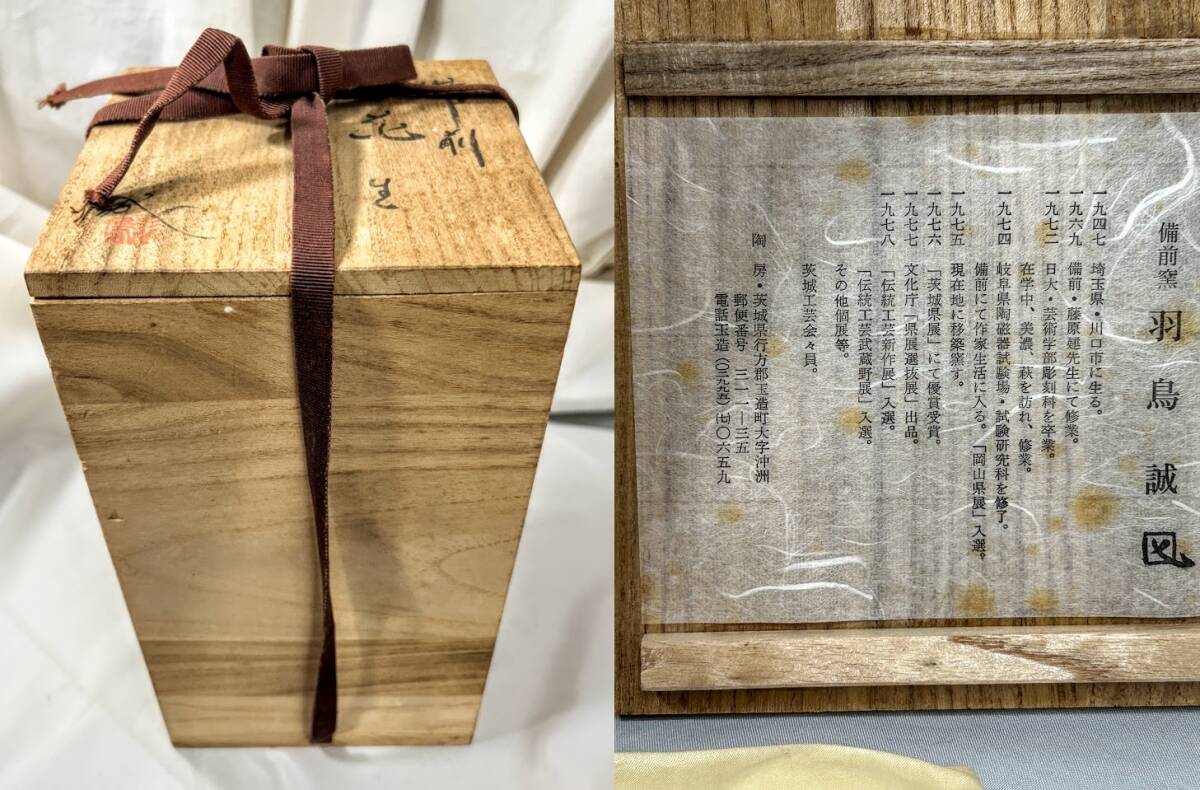 備前
花生
備前窯 羽鳥 誠
一九四七 埼玉県・川口市に生る。
一九六九 備前・藤原建先生にて修業。
一九七二 日大・芸術学部彫刻科を卒業。
在学中、美濃、萩を訪れ、修業。
一九七四 岐阜県陶磁器試験場・試験研究科を修了。
備前にて作家生活に入る。「岡山県展」入選。
一九七五 現在地に移築窯す。
一九七六 「茨城県展」にて優賞受賞。
一九七七 文化庁「県展選抜展」出品。
一九七八 「伝統工芸新作展」入選。
「伝統工芸武蔵野展」入選。
その他個展等。
茨城工芸会々員。
陶房・茨城県行方郡玉造町大字沖洲
郵便番号 三一一ー三五
電話玉造(〇二九九五)(七)〇六五九